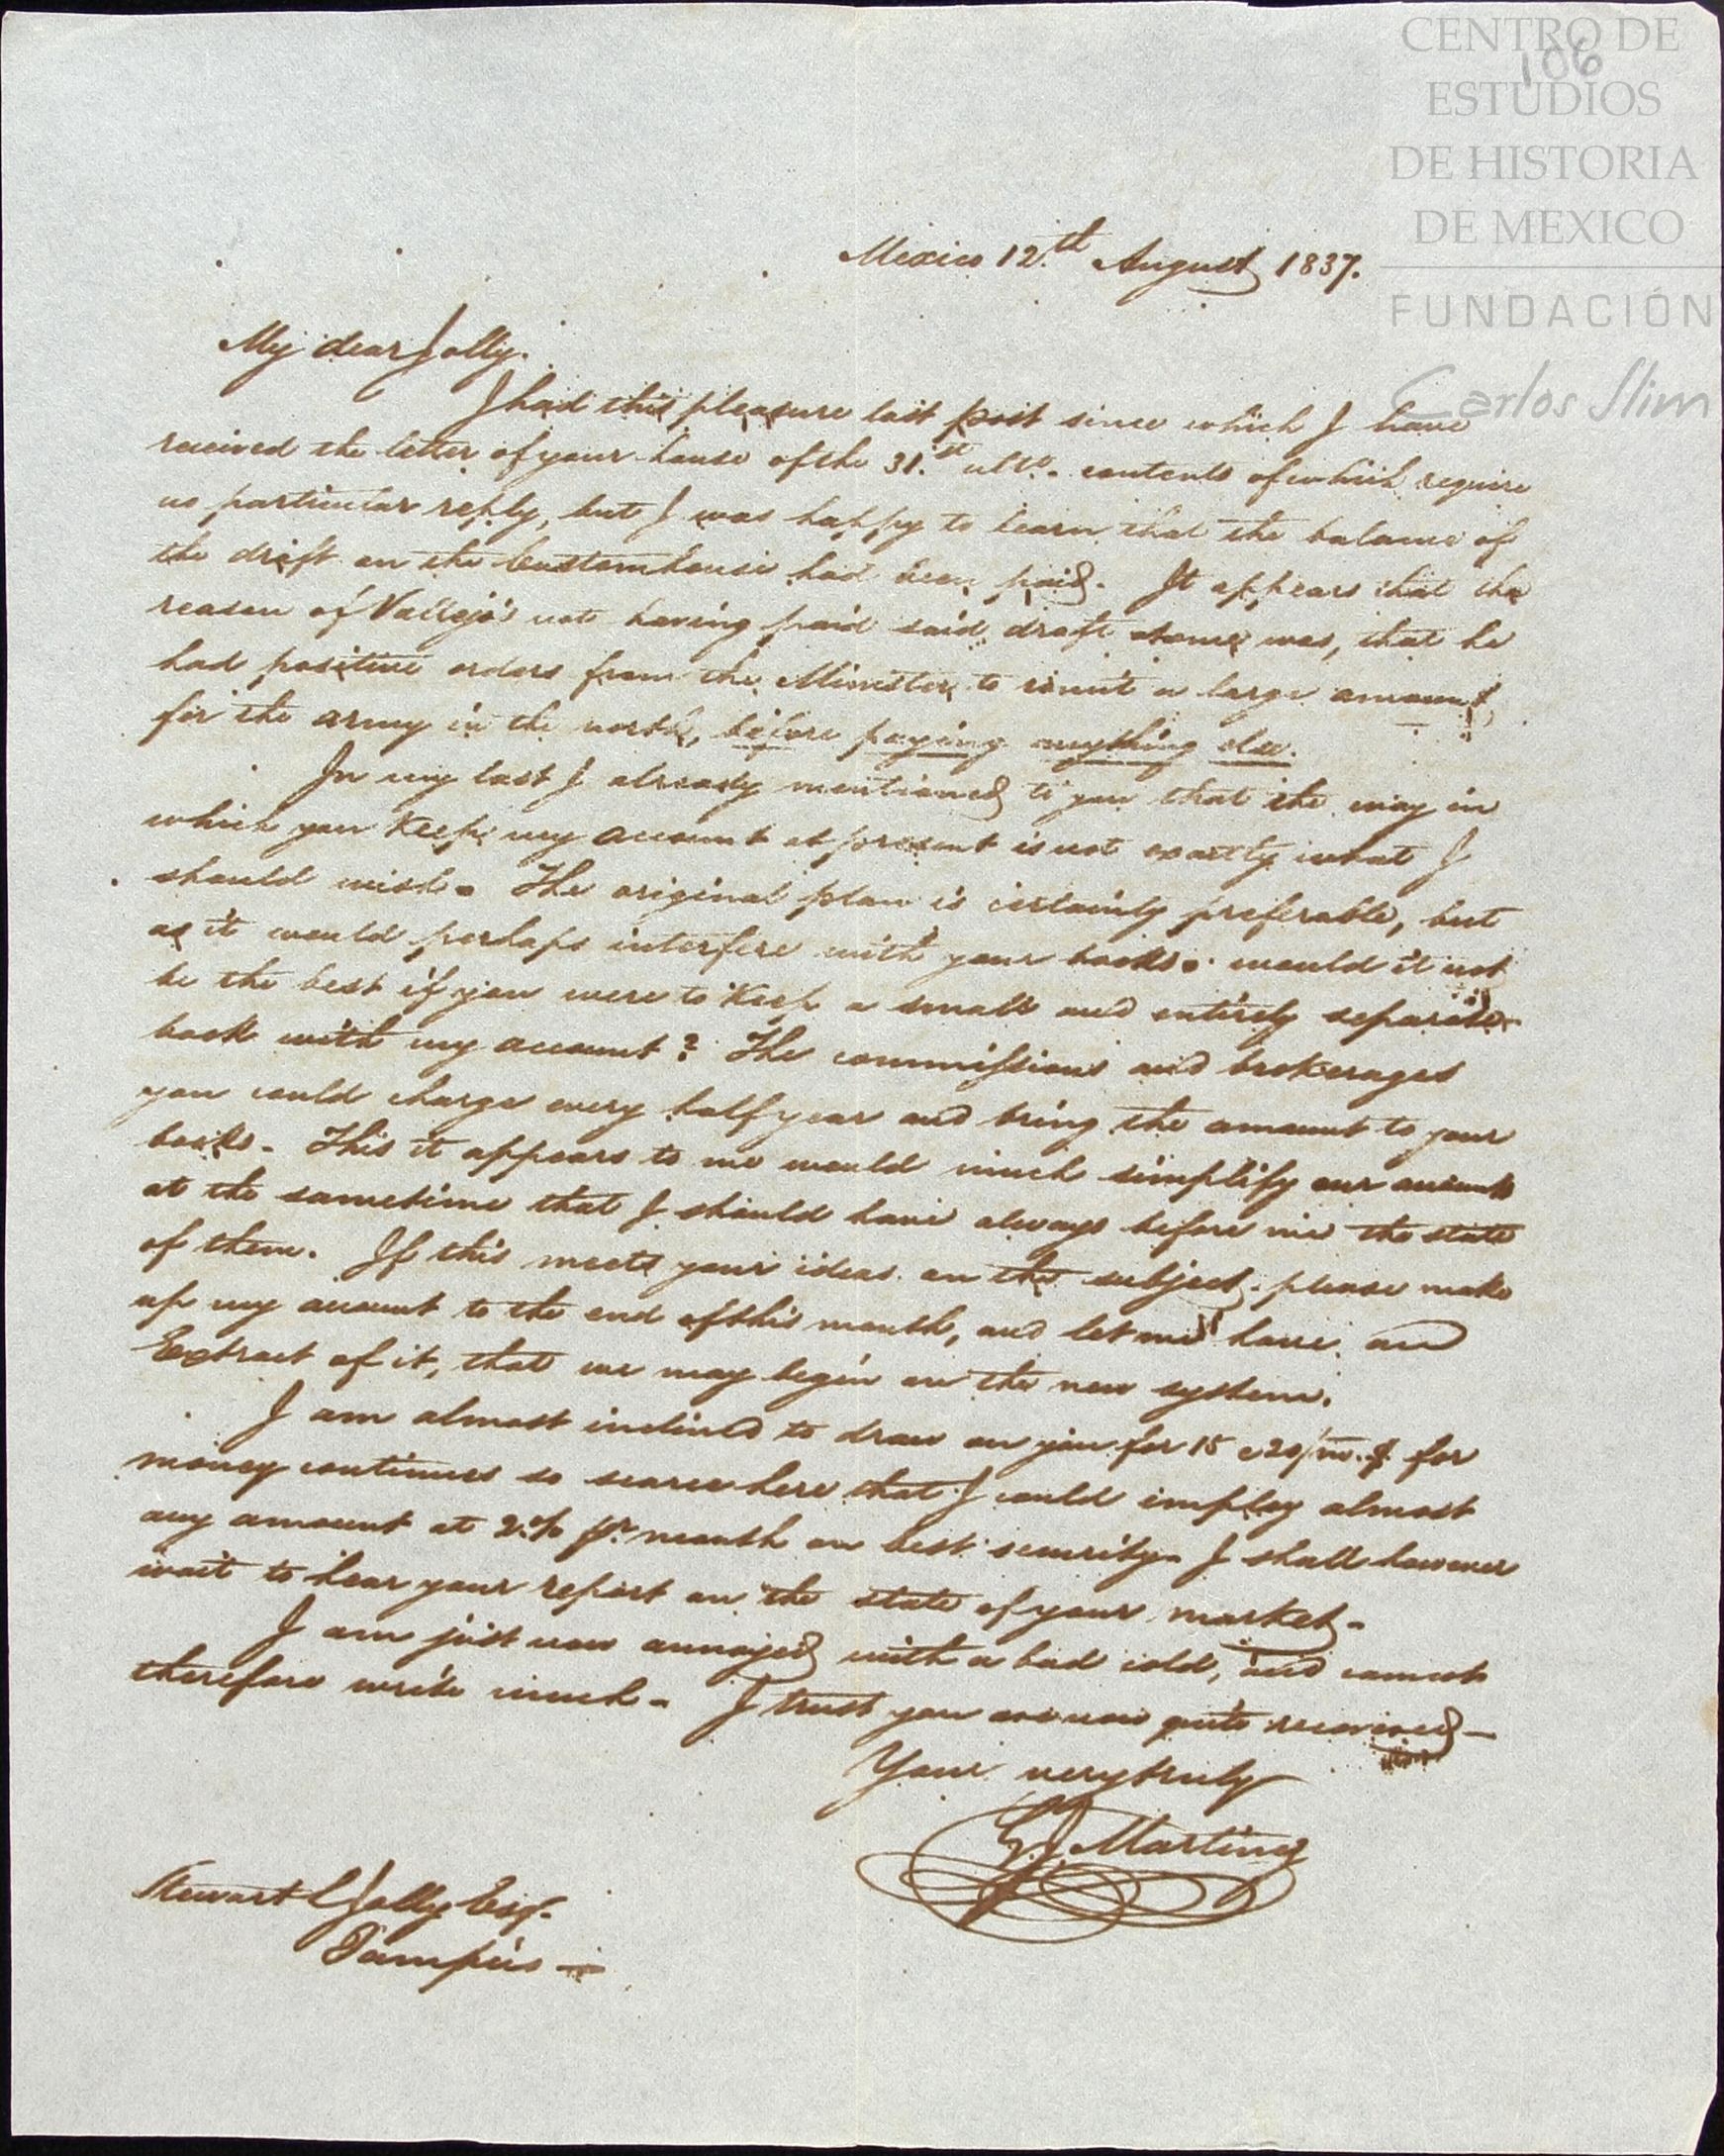 CENTRO DE
ESTUDIOS
DE HISTORIA
DE MEXICO
FUNDACIÓN
Carlos Slim
106
Mexico 12.th August 1837.
My dear Jolly.
I had this pleasure last post since which I have
received the letter of your house of the 31.st ulto. contents of which require
no particular reply, but I was happy to learn that the balance of
the draft on the Customhouse had been paid. It appears that the
reason of Vallejo's not having paid said draft at once was, that he
had positive orders from the Minister to remit a large amount
for the army in the north, before paying anything else.
In my last I already mentioned to you that the way in
which you keep my account at present is not exactly what I
should wish. The original plan is certainly preferable, but
as it would perhaps interfere with your books. would it not
be the best if you were to keep a small and entirely separate
book with my account? The commissions and brokerages
you could charge every half year and bring the amount to your
books. This it appears to me would much simplify our accounts
at the sametime that I should have always before me the state
of them. If this meets your ideas on the subject. please make
up my account to the end of this month, and let me have an
Extract of it, that we may begin on the new system.
I am almost inclined to draw on you for 15 a 20/m. $ for
money continues so scarce here that I could imploy almost
any amount at 2.% pr. month on best security. I shall however
wait to hear your report on the state of your market.
I am just now annoyed with a bad cold, and cannot
therefore write much. I trust you are now quite recovered_
Your very truly
G. J. Martinez
Stewart L Jolly Esq.
Tampico